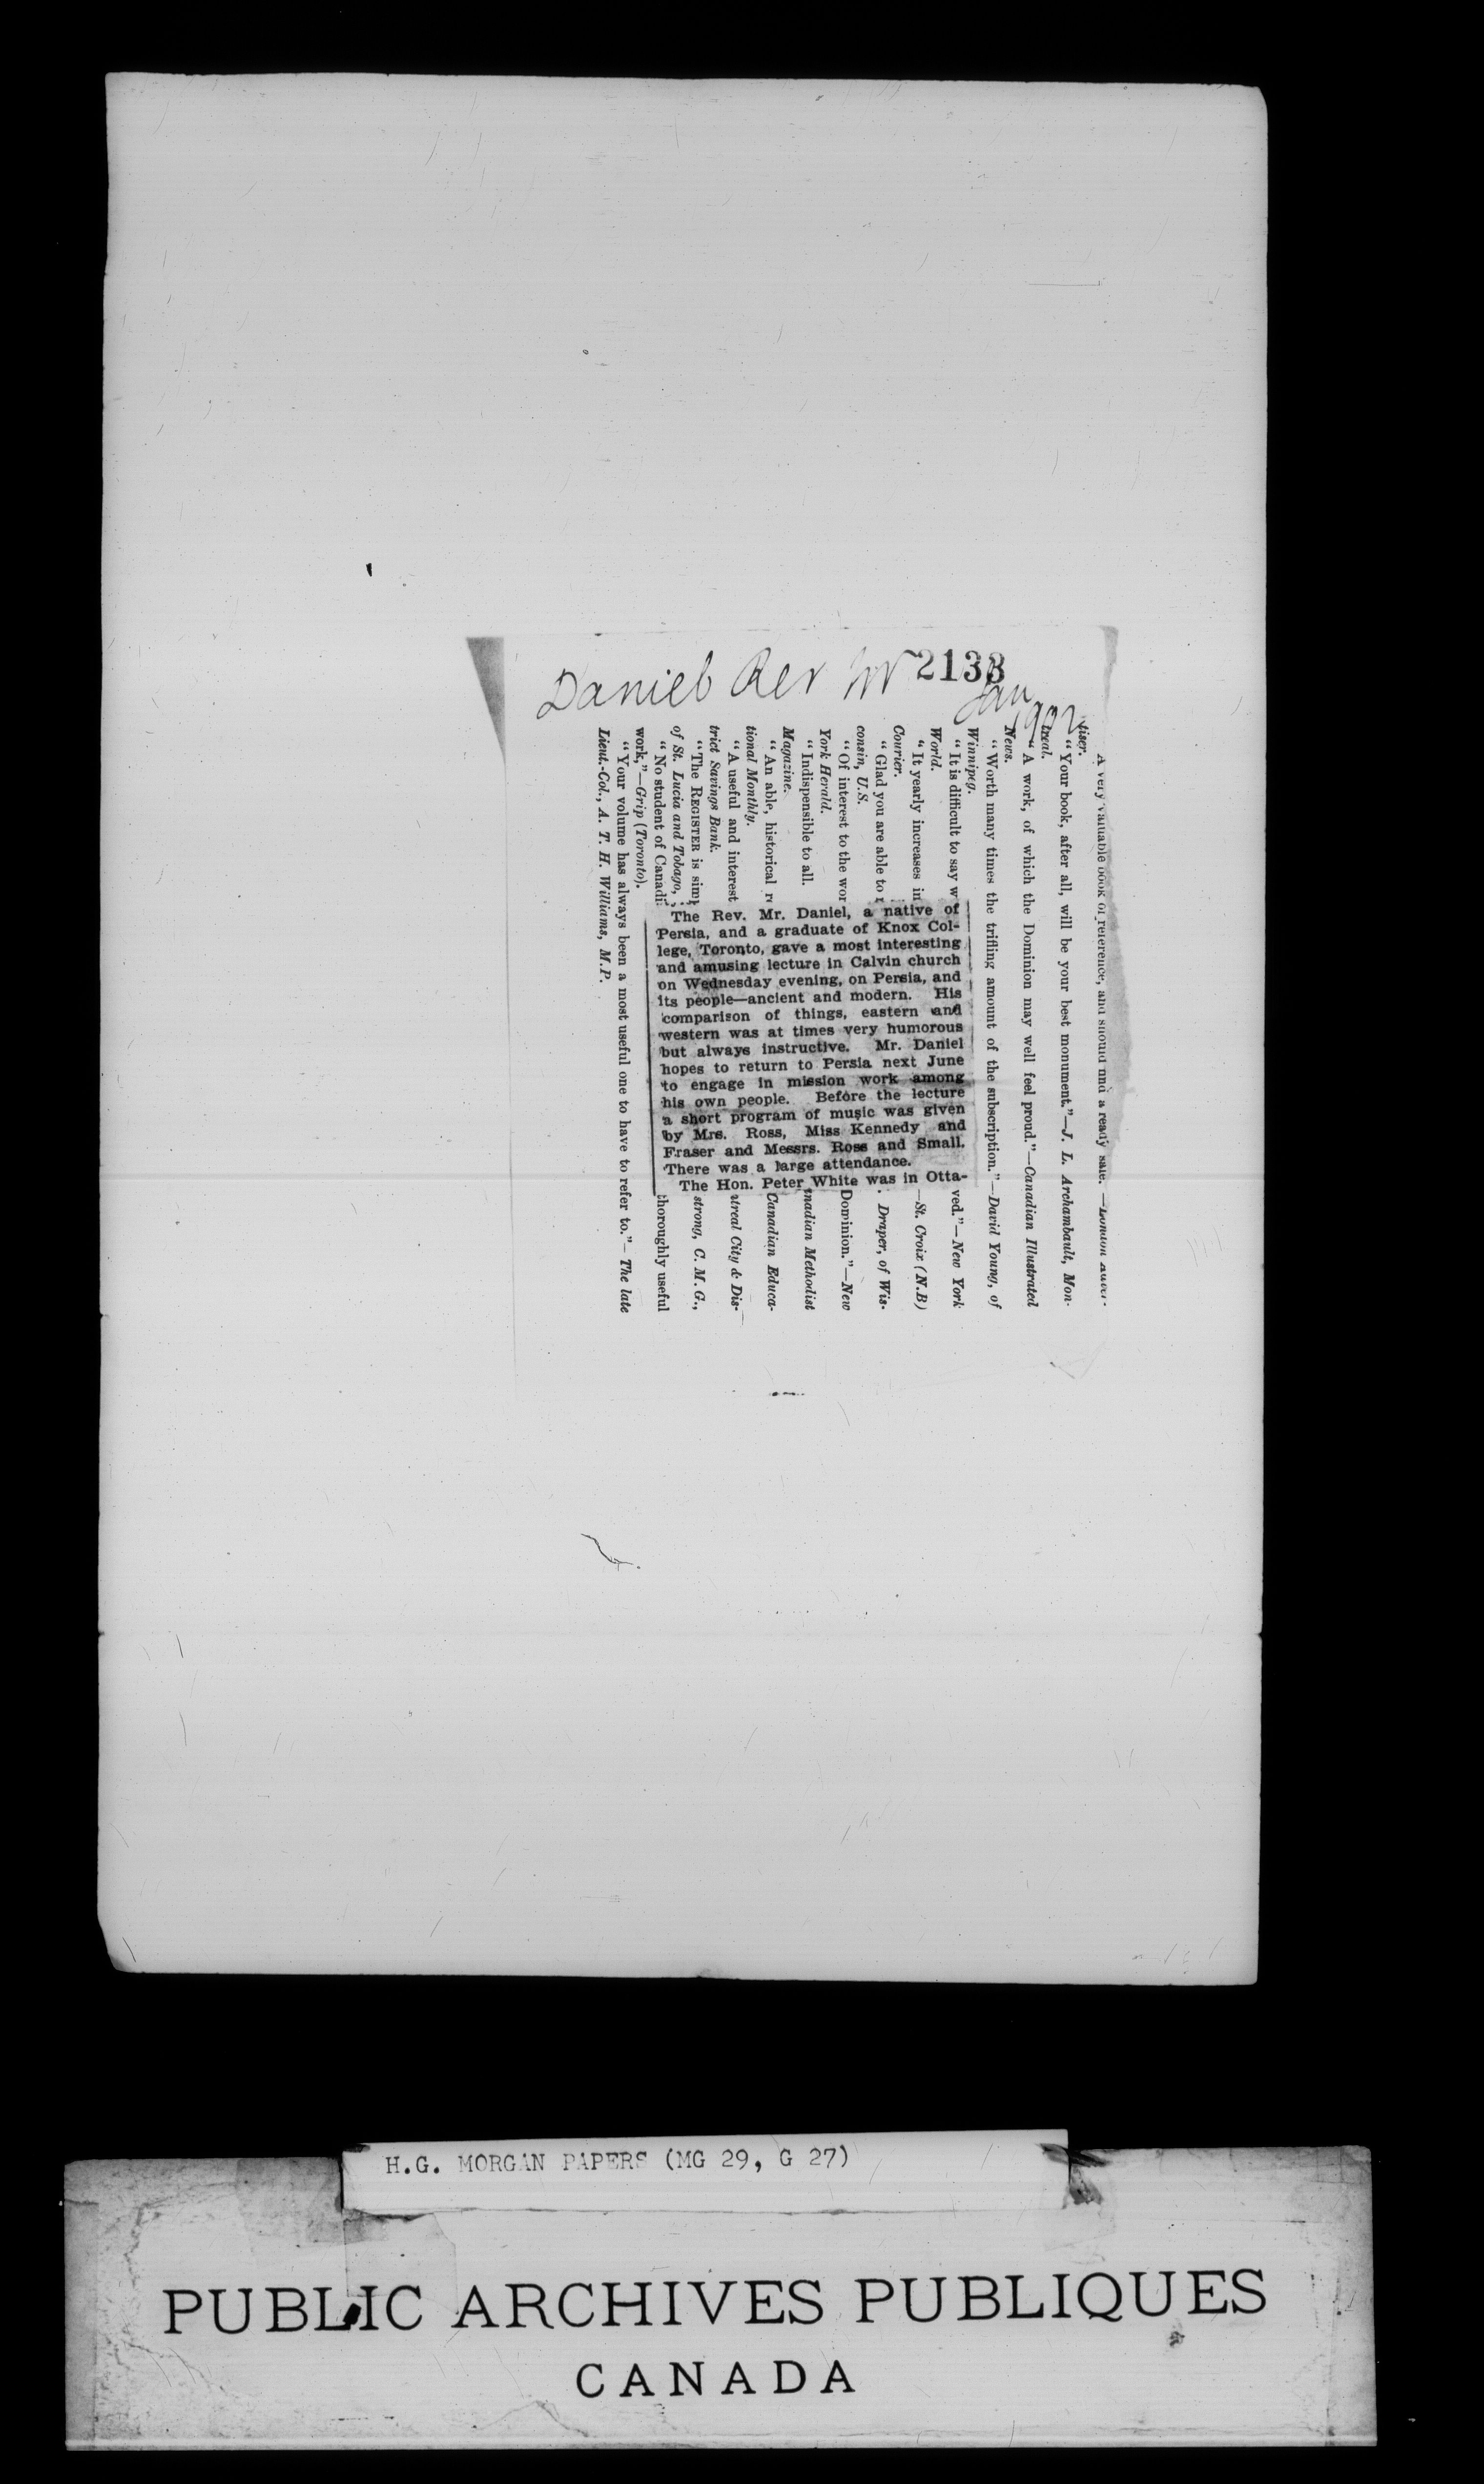 Daniel Rev Mr 2133
Jan 1902
The Rev. Mr. Daniel, a native of
Persia, and a graduate of Knox Col-
lege, Toronto, gave a most interesting
and amusing lecture in Calvin church
on Wednesday evening, on Persia, and
its people—ancient and modern. His
comparison of things, eastern and
western was at times very humorous
but always instructive. Mr. Daniel
hopes to return to Persia next June
to engage in mission work among
his own people. Before the lecture
a short program of music was given
by Mrs. Ross, Miss Kennedy and
Fraser and Messrs. Ross and Small.
There was a large attendance.
The Hon. Peter White was in Otta-
A very valuable book of reference, and should find a ready sale. —London
tiser.
“Your book, after all, will be your best monument.”—J. L. Archambault, Mon-
treal.
“A work, of which the Dominion may well feel proud.”—Canadian Illustrated
News.
“Worth many times the trifling amount of the subscription.”—David Young, of
Winnipeg.
“It is difficult to say w ved.”—New York
World.
“It yearly increases in —St. Croix (N.B)
Courier.
“Glad you are able to . Draper, of Wis-
consin, U.S.
“Of interest to the wor Dominion.”—New
York Herald.
“Indispensible to all. nadian Methodist
Magazine.
“An able, historical r Canadian Educa-
tional Monthly.
“A useful and interest treal City & Dis-
trict Savings Bank.
“The REGISTER is simp strong, C. M. G.,
of St. Lucia and Tobago,
“No student of Canadi thoroughly useful
work,”—Grip (Toronto).
“Your volume has always been a most useful one to have to refer to.”—The late
Lieut.-Col., A. T. H. Williams, M.P.
H.G. MORGAN PAPERS (MG 29, G 27)
PUBLIC ARCHIVES PUBLIQUES
CANADA